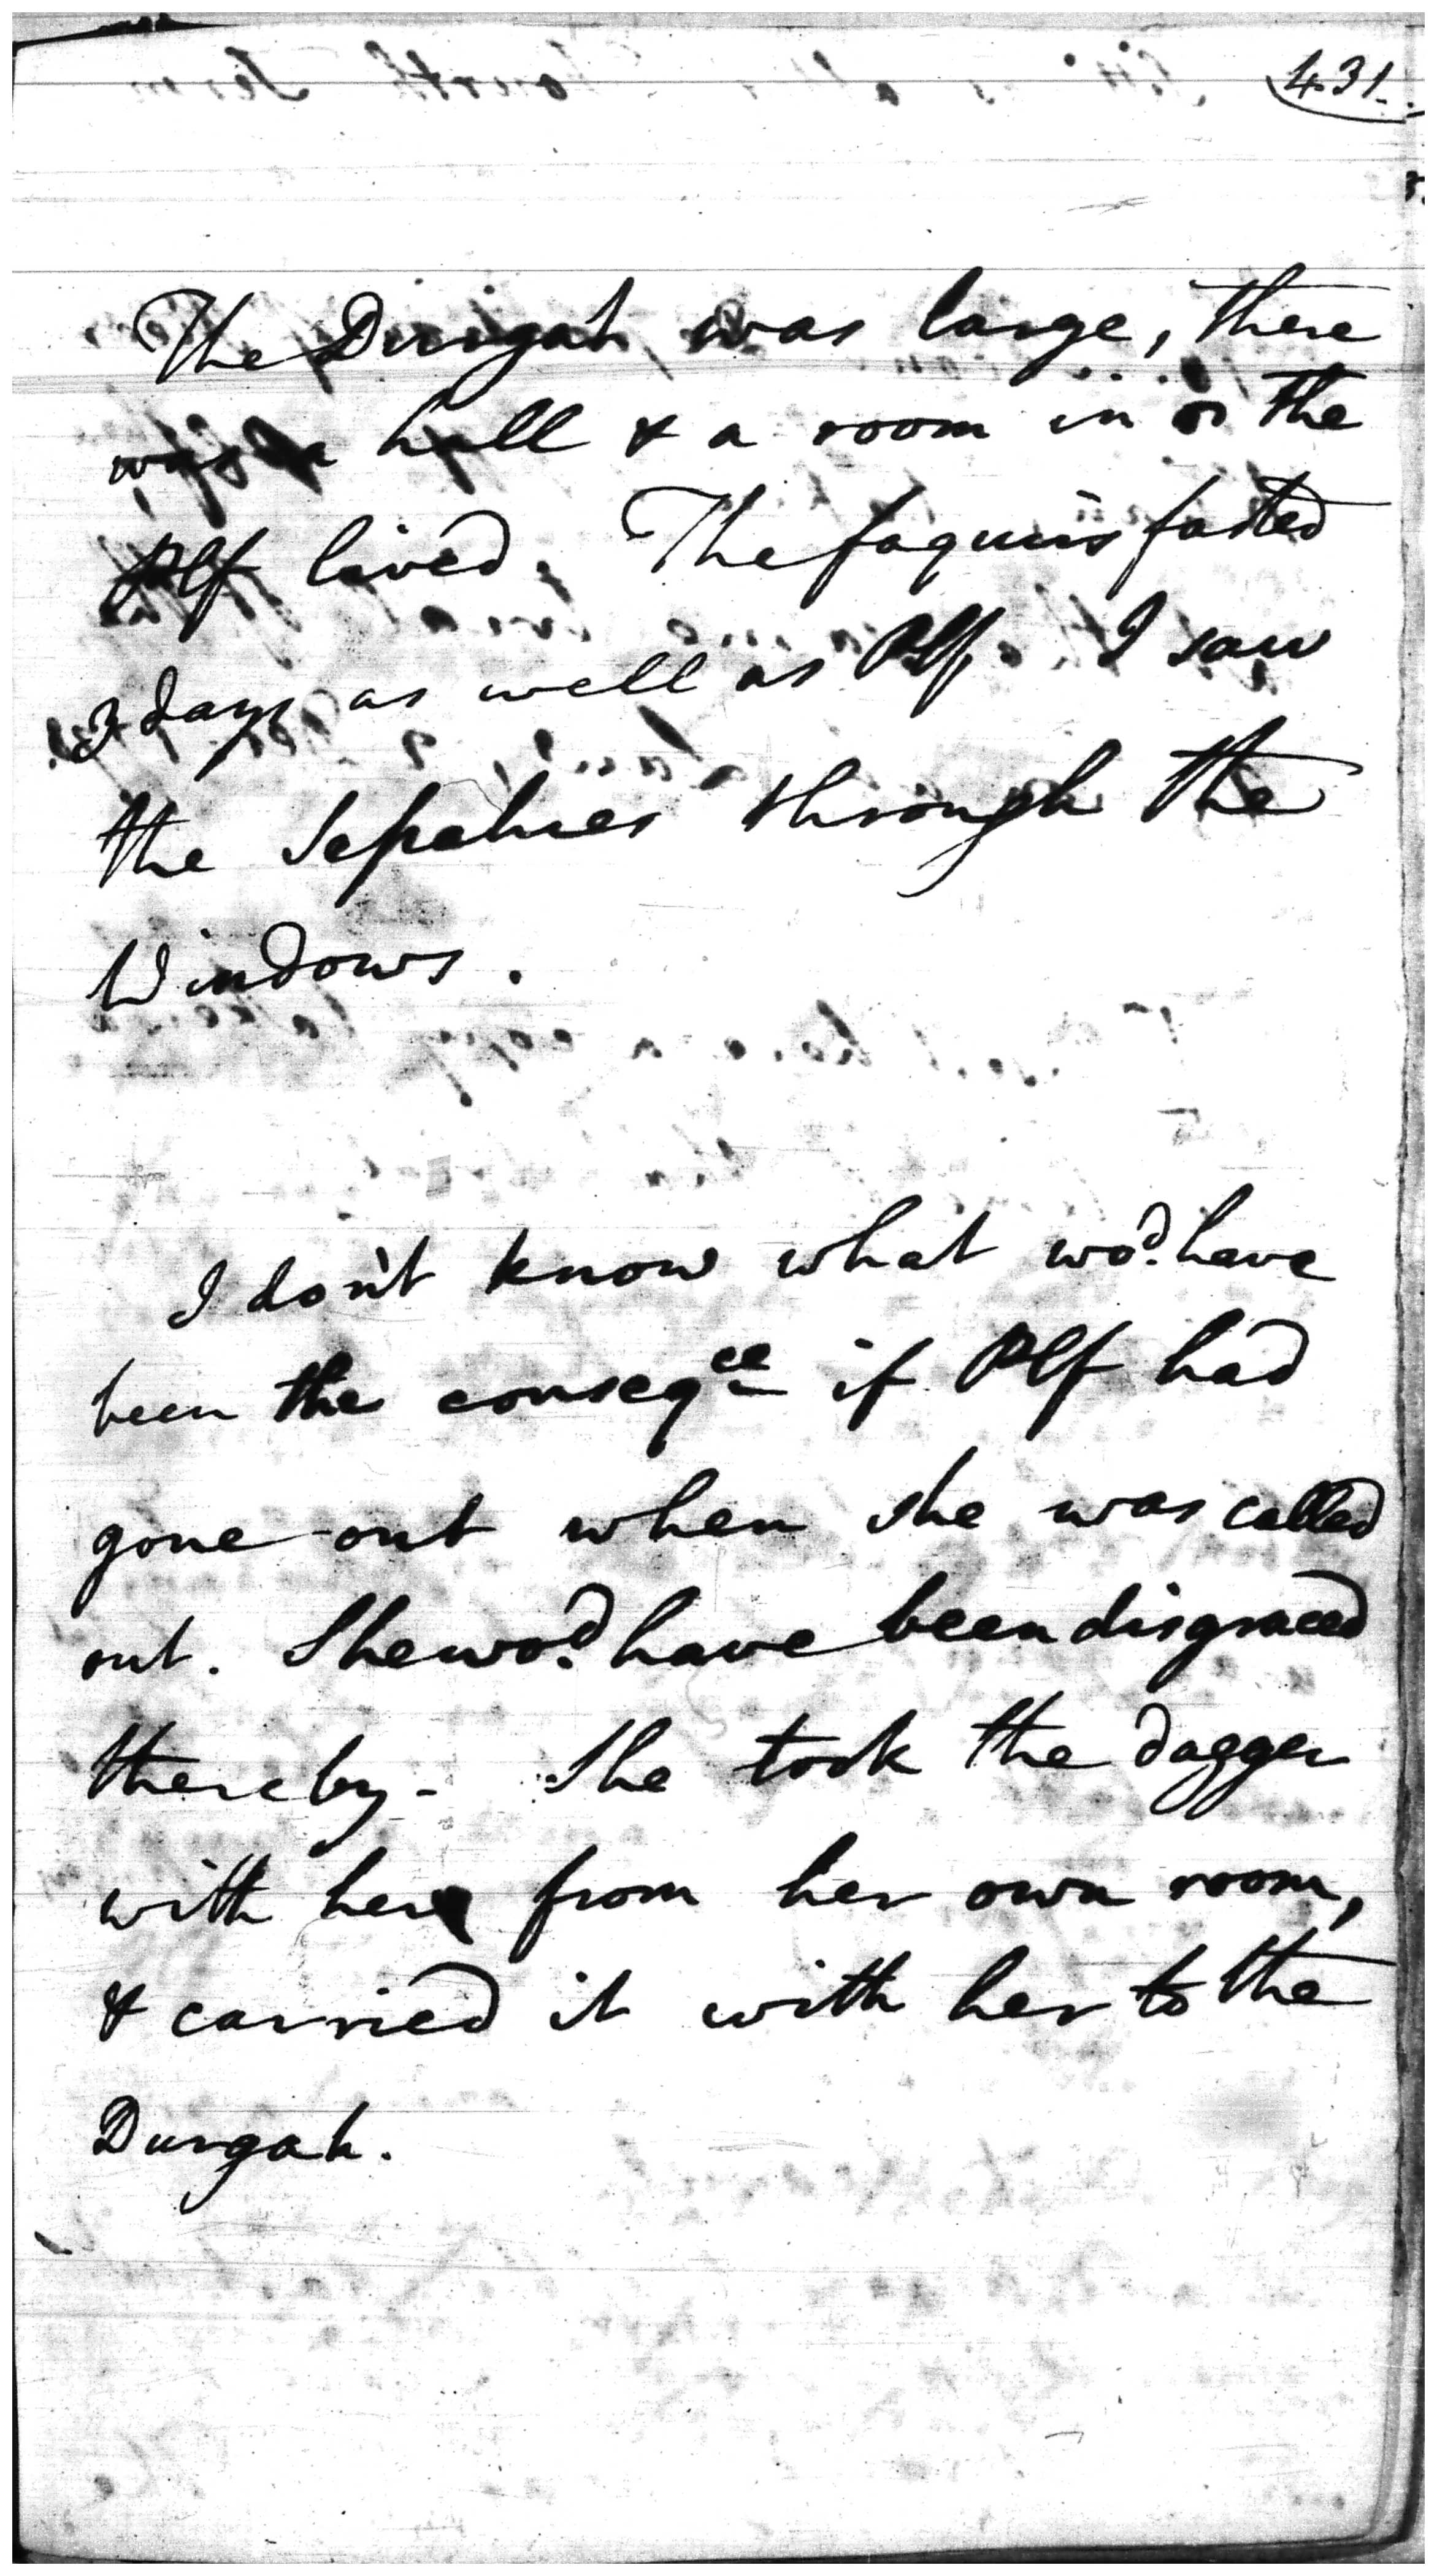 431.
The Durgah was large, there
was a hall & a room in the
Plf lived. The faquirs fasted
3 days as well as Plf. I saw
the Sepahies through the
Windows.
I don't know what wod. have
been the conseqce if Plf had
gone out when she was called
out. She wod. have been disgraced
thereby - She took the dagger
with her from her own room,
& carried it with her to the
Durgah.